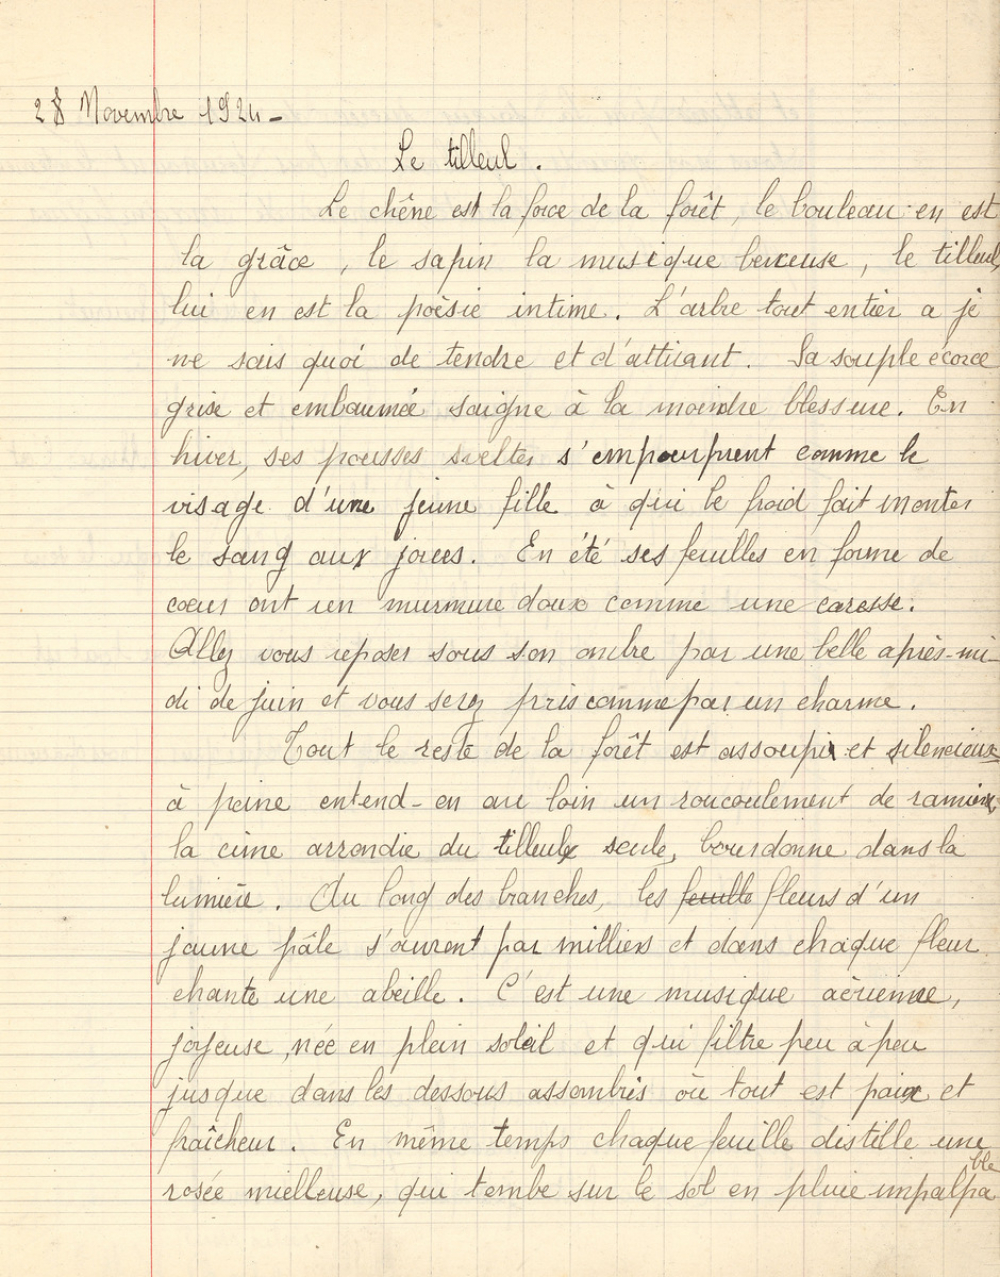 28 Novembre 1924 -
Le tilleul.
Le chêne est la force de la forêt, le bouleau en est
la grâce, le sapin la musique berceuse, le tilleul,
lui en est la poèsie intime. L'arbre tout entier a je
ne sais quoi de tendre et d'attirant. Sa souple écorce
grise et embaumée saigne à la moindre blessure. En
hiver, ses pousses sveltes s'empourprent comme le
visage d'une jeune fille à qui le froid fait monter
le sang aux joues. En été ses feuilles en forme de
coeur ont un murmure doux comme une caresse.
Allez vous reposer sous son ombre par une belle après-mi-
di de juin et vous serez pris comme par un charme.
Tout le reste de la forêt est assoupi et silencieux
à peine entend-on au loin un roucoulement de ramiers
la cime arrondie du tilleul seule, bourdonne dans la
lumière. Au long des branches, les feuille fleurs d'un
jaune pâle s'ouvrent par milliers et dans chaque fleur
chante une abeille. C'est une musique aérienne,
joyeuse, née en plein soleil et qui filtre peu à peu
jusque dans les dessous assombris où tout est paix et
fraîcheur. En même temps chaque feuille distille une
rosée mielleuse, qui tombe sur le sol en pluie impalpable